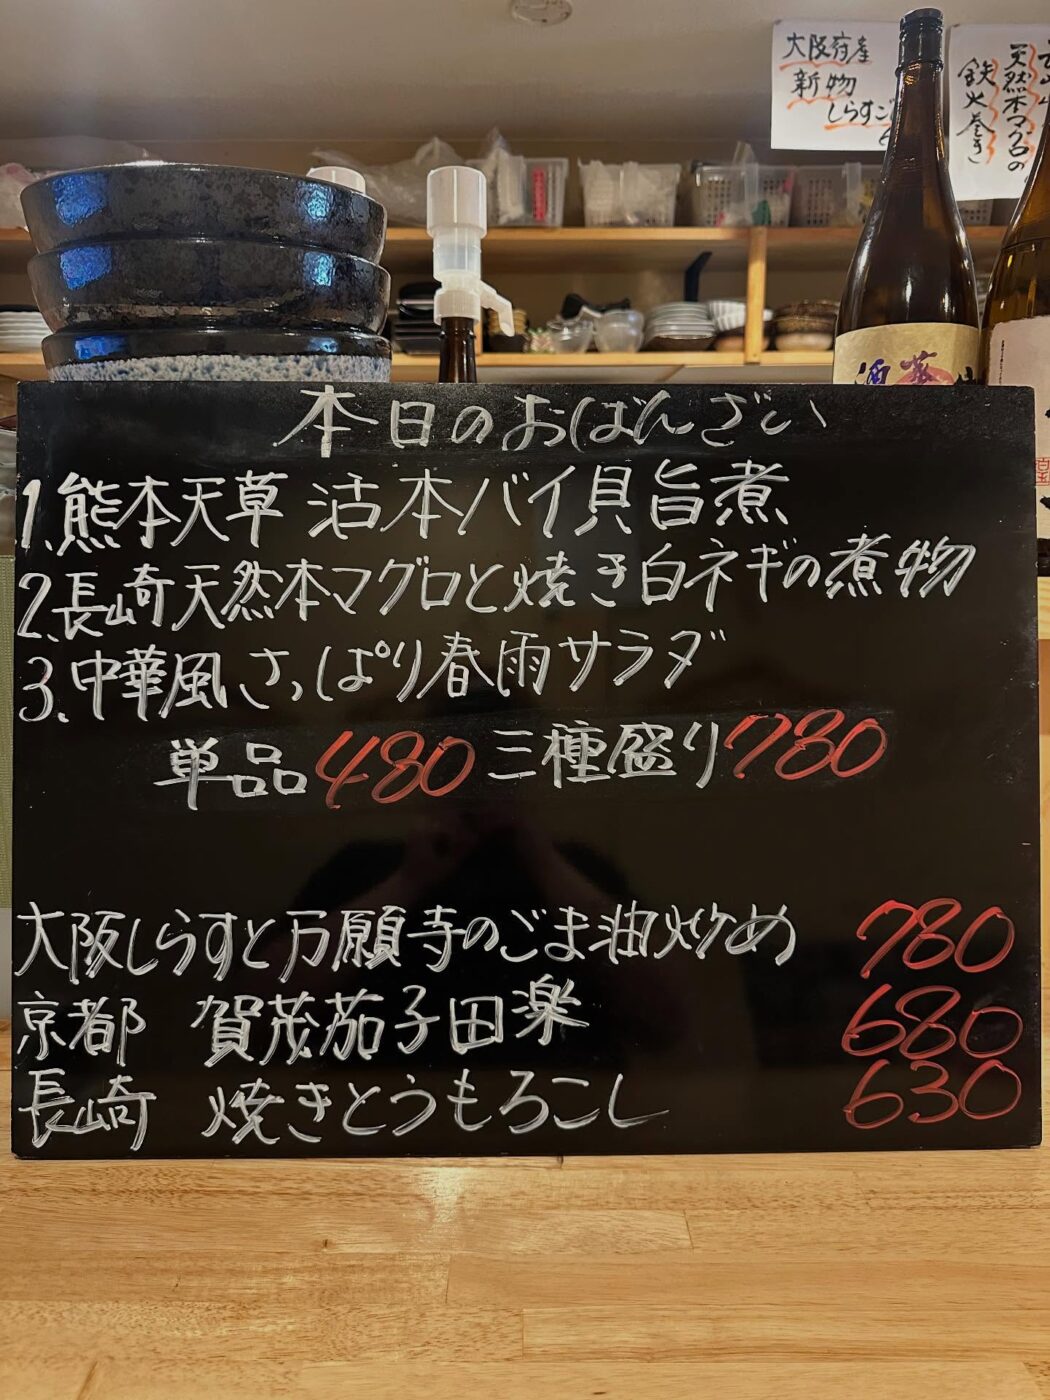 大阪府産
新物
しらすご
天然本マグロの
鉄火巻き
本日のおばんざい
1.熊本天草 活本バイ貝旨煮
2.長崎天然本マグロと焼き白ネギの煮物
3.中華風さっぱり春雨サラダ
単品480 三種盛り780
大阪しらすと万願寺のごま油炒め 780
京都 賀茂茄子田楽 680
長崎 焼きとうもろこし 630